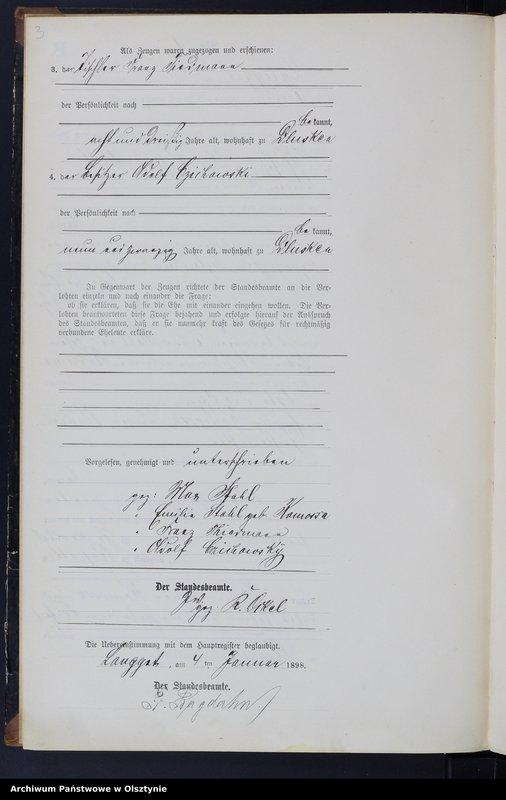 3
Als Zeugen waren zugezogen und erschienen:
3. der Tischler Franz Tiedmann
der Persönlichkeit nach
be kannt,
acht und dreißig Jahre alt, wohnhaft zu Pluskeu
4. der Besitzer Adolf Czichowski
der Persönlichkeit nach
be kannt,
neun und zwanzig Jahre alt, wohnhaft zu
In Gegenwart der Zeugen richtete der Standesbeamte an die Ver-
lobten einzeln und nach einander die Frage:
ob sie erklären, daß sie die Ehe mit einander eingehen wollen. Die Ver-
lobten beantworteten diese Frage bejahend und erfolgte hierauf der Ausspruch
des Standesbeamten, daß er sie nunmehr kraft des Gesetzes für rechtmäßig
verbundene Eheleute erkläre.
Vorgelesen, genehmigt und unterschrieben
gez: Max Stahl
" Emilie Stahl geb. Komossa
" Franz Thiedmann
" Adolf Czichowsky
Der Standesbeamte.
gez. R.
Die Uebereinstimmung mit dem Hauptregister beglaubigt.
Langgut, am 4 ten Januar 1898.
Der Standesbeamte.
Bogdahn
Archiwum Państwowe w Olsztynie